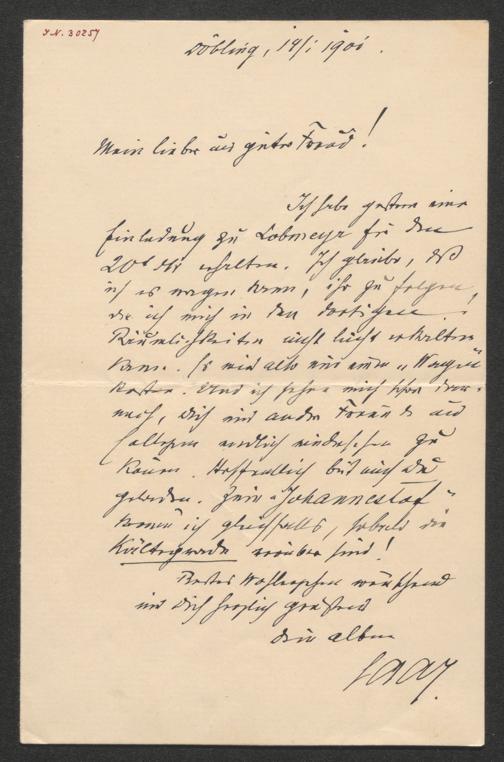 J.N. 30257
Döbling, 14/1 1901.
Mein lieber und guter Freund!
Ich habe gestern eine
Einladung zu Lobmeyr für den
20t erhalten. Ich glaube, daß
ich es wagen kann, ihr zu folgen,
da ich mich in den dortigen
Räumlichkeiten nicht leicht erkälten
kann. Es wird also nur einen „Wagen"
kosten. Und ich sehne mich schon
nach, Dich und andere Freunde und
Collegen endlich wiedersehen zu
können. Hoffentlich bist auch Du
geladen. Zum „Johannestof"
komme ich gleichfalls, sobald die
Kältegrade vorüber sind!
Bestes Wohlergehen wünschend
und Dich herzlich grüßend
dein alter
Saar.